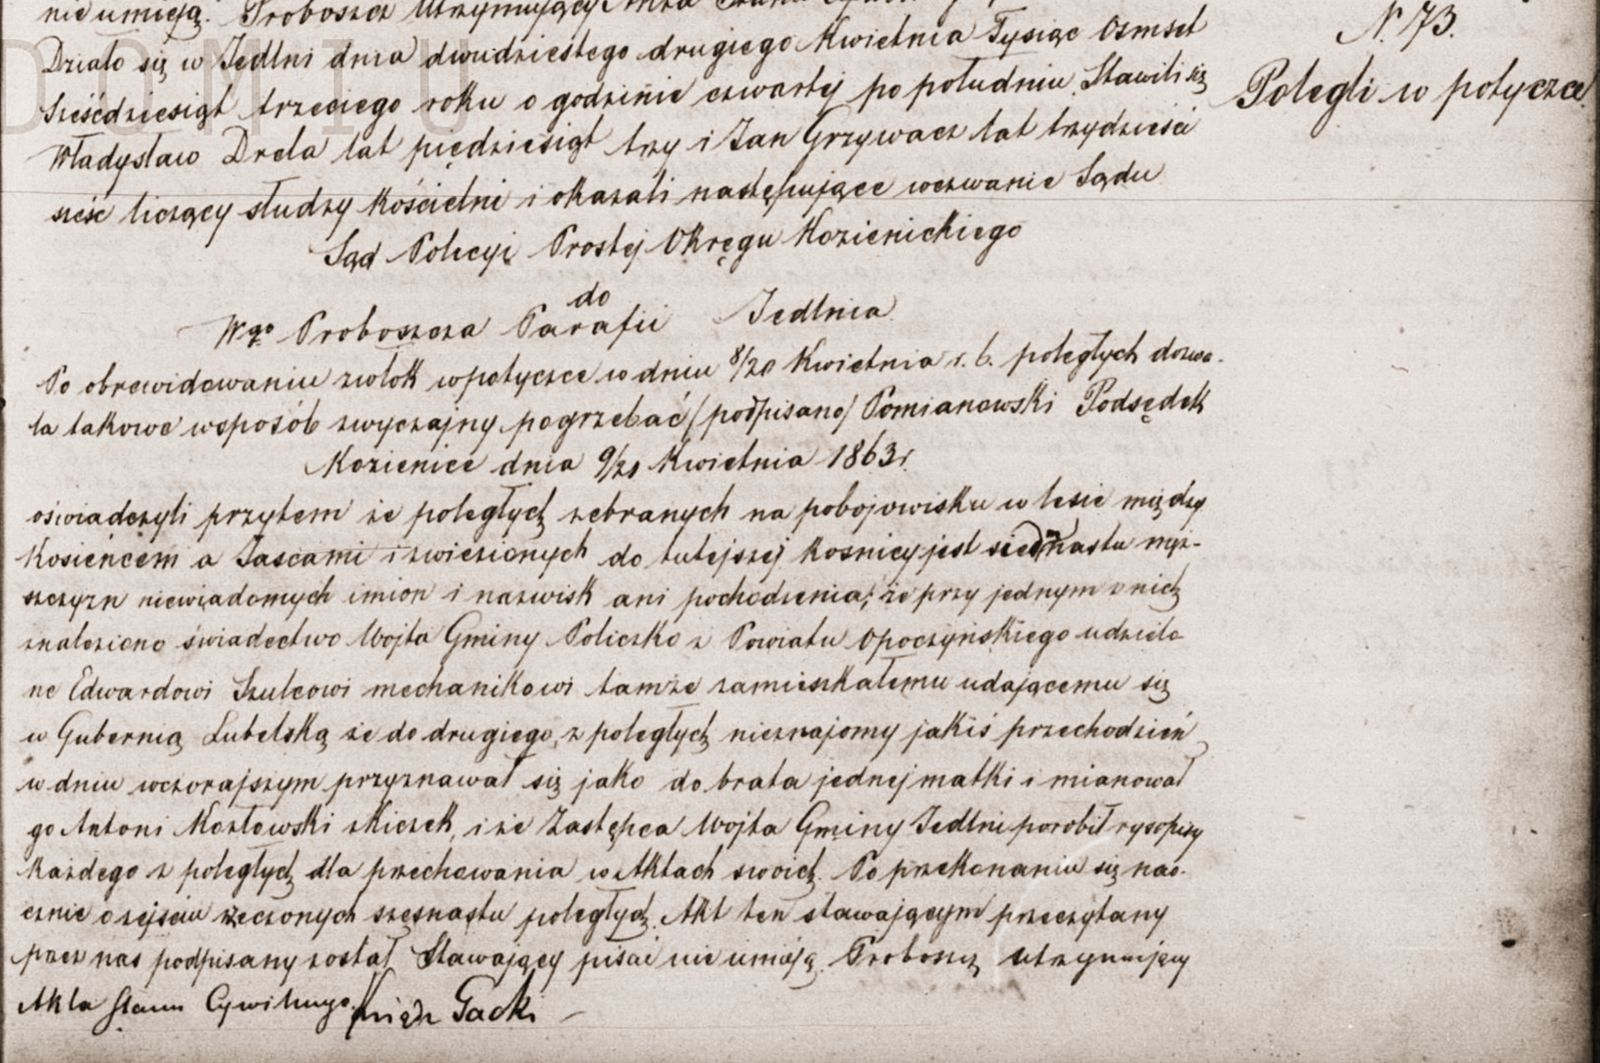 nie umieją. Proboszcz Utrzymujący Akta Stanu
N. 73.
Polegli w potyczce
Działo się w Jedlni dnia dwudziestego drugiego Kwietnia Tysiąc Osmset
Sześćdziesiąt trzeciego roku o godzinie czwartej po południu. Stawili się
Władysław Drela lat pięćdziesiąt trzy i Jan Grzywacz lat trzydzieści
sześć liczący słudzy Kościelni i okazali następujące wezwanie Sądu
Sąd Policyi Prostej Okręgu Kozienickiego
do
Wgo Proboszcza Parafii Jedlnia
Po obrewidowaniu zwłok w potyczce w dniu 8/20 Kwietnia r. b. poległych dozwa-
la takowe wsposób zwyczajny pogrzebać /podpisano/ Pomianowski Podsędek
Kozienice dnia 9/21 Kwietnia 1863 r.
oświadczyli przytem że poległych zebranych na pobojowisku w lesie między
Kosieńcem a Jascami i zwiezionych do tutejszej kosnicy jest męż-
szczyzn niewiadomych imion i nazwisk ani pochodzenia; że przy jednym z nich
znaleziono świadectwo Wójta Gminy Policzko z Powiatu Opoczyńskiego udzielo-
ne Edwardowi Szulcowi mechanikowi tamże zamieszkałemu udającemu się
w Gubernią Lubelską że do drugiego z poległych nieznajomy jakiś przechodzień
w dniu wczorajszym przyznawał się jako do brata jednej matki i mianował
go Antoni Kozłowski i że Zastępca Wójta Gminy Jedlni porobił rysopisy
każdego z poległych dla przechowania w Aktach swoich. Po przekonaniu się nao-
cznie o zejściu rzeczonych szesnastu poległych. Akt ten stawającym przeczytany
przez nas podpisany został Stawający pisać nie umieją. Proboszcz utrzymujący
Akta Stanu Cywilnego Ksiądz Gacki